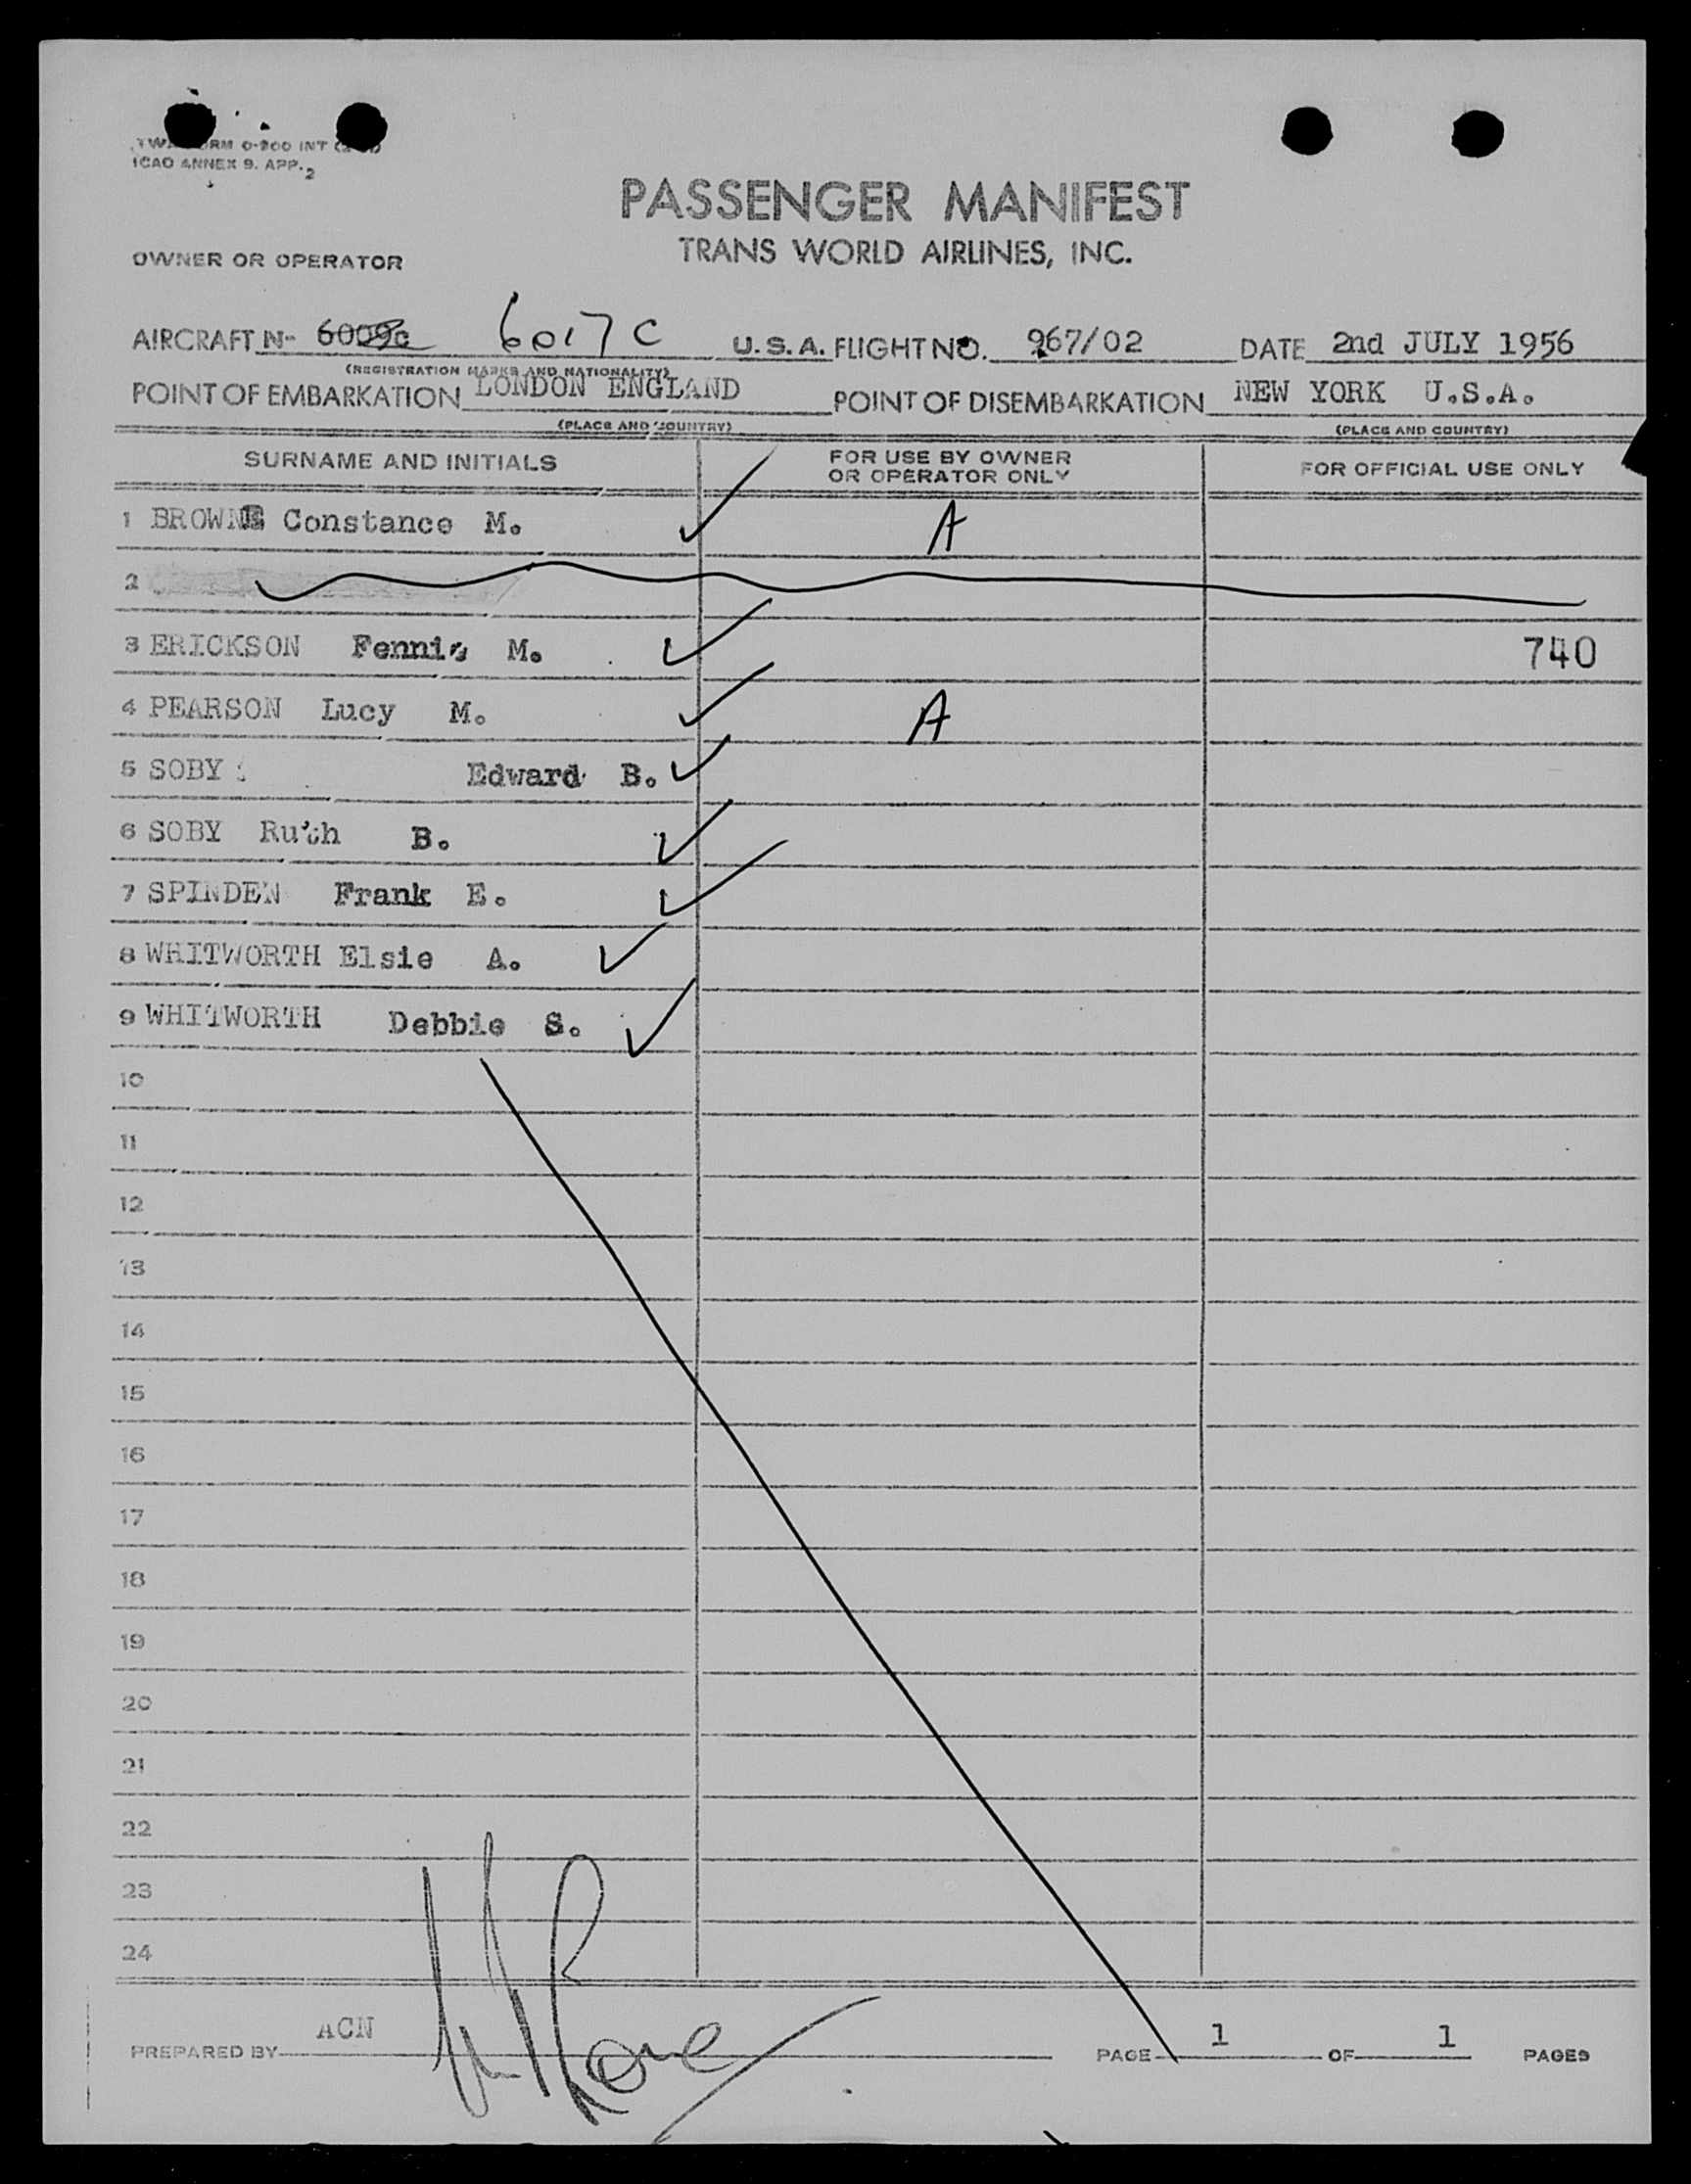 ICAO ANNEX 9. APP. 2
PASSENGER MANIFEST
TRANS WORLD AIRLINES, INC.
OWNER OR OPERATOR
AIRCRAFT N- 6009C 6017C U.S.A. FLIGHT NO. 967/02 DATE 2nd JULY 1956
(REGISTRATION MARKS AND NATIONALITY)
POINT OF EMBARKATION LONDON ENGLAND POINT OF DISEMBARKATION NEW YORK U.S.A.
(PLACE AND COUNTRY) (PLACE AND COUNTRY)
SURNAME AND INITIALS FOR USE BY OWNER OR OPERATOR ONLY FOR OFFICIAL USE ONLY
1 BROWNE Constance M. A
2
3 ERICKSON Fennie M. 740
4 PEARSON Lucy M. A
5 SOBY Edward B.
6 SOBY Ruth B.
7 SPINDEN Frank E.
8 WHITWORTH Elsie A.
9 WHITWORTH Debbie S.
10
11
12
13
14
15
16
17
18
19
20
21
22
23
24
PREPARED BY ACN PAGE 1 OF 1 PAGES